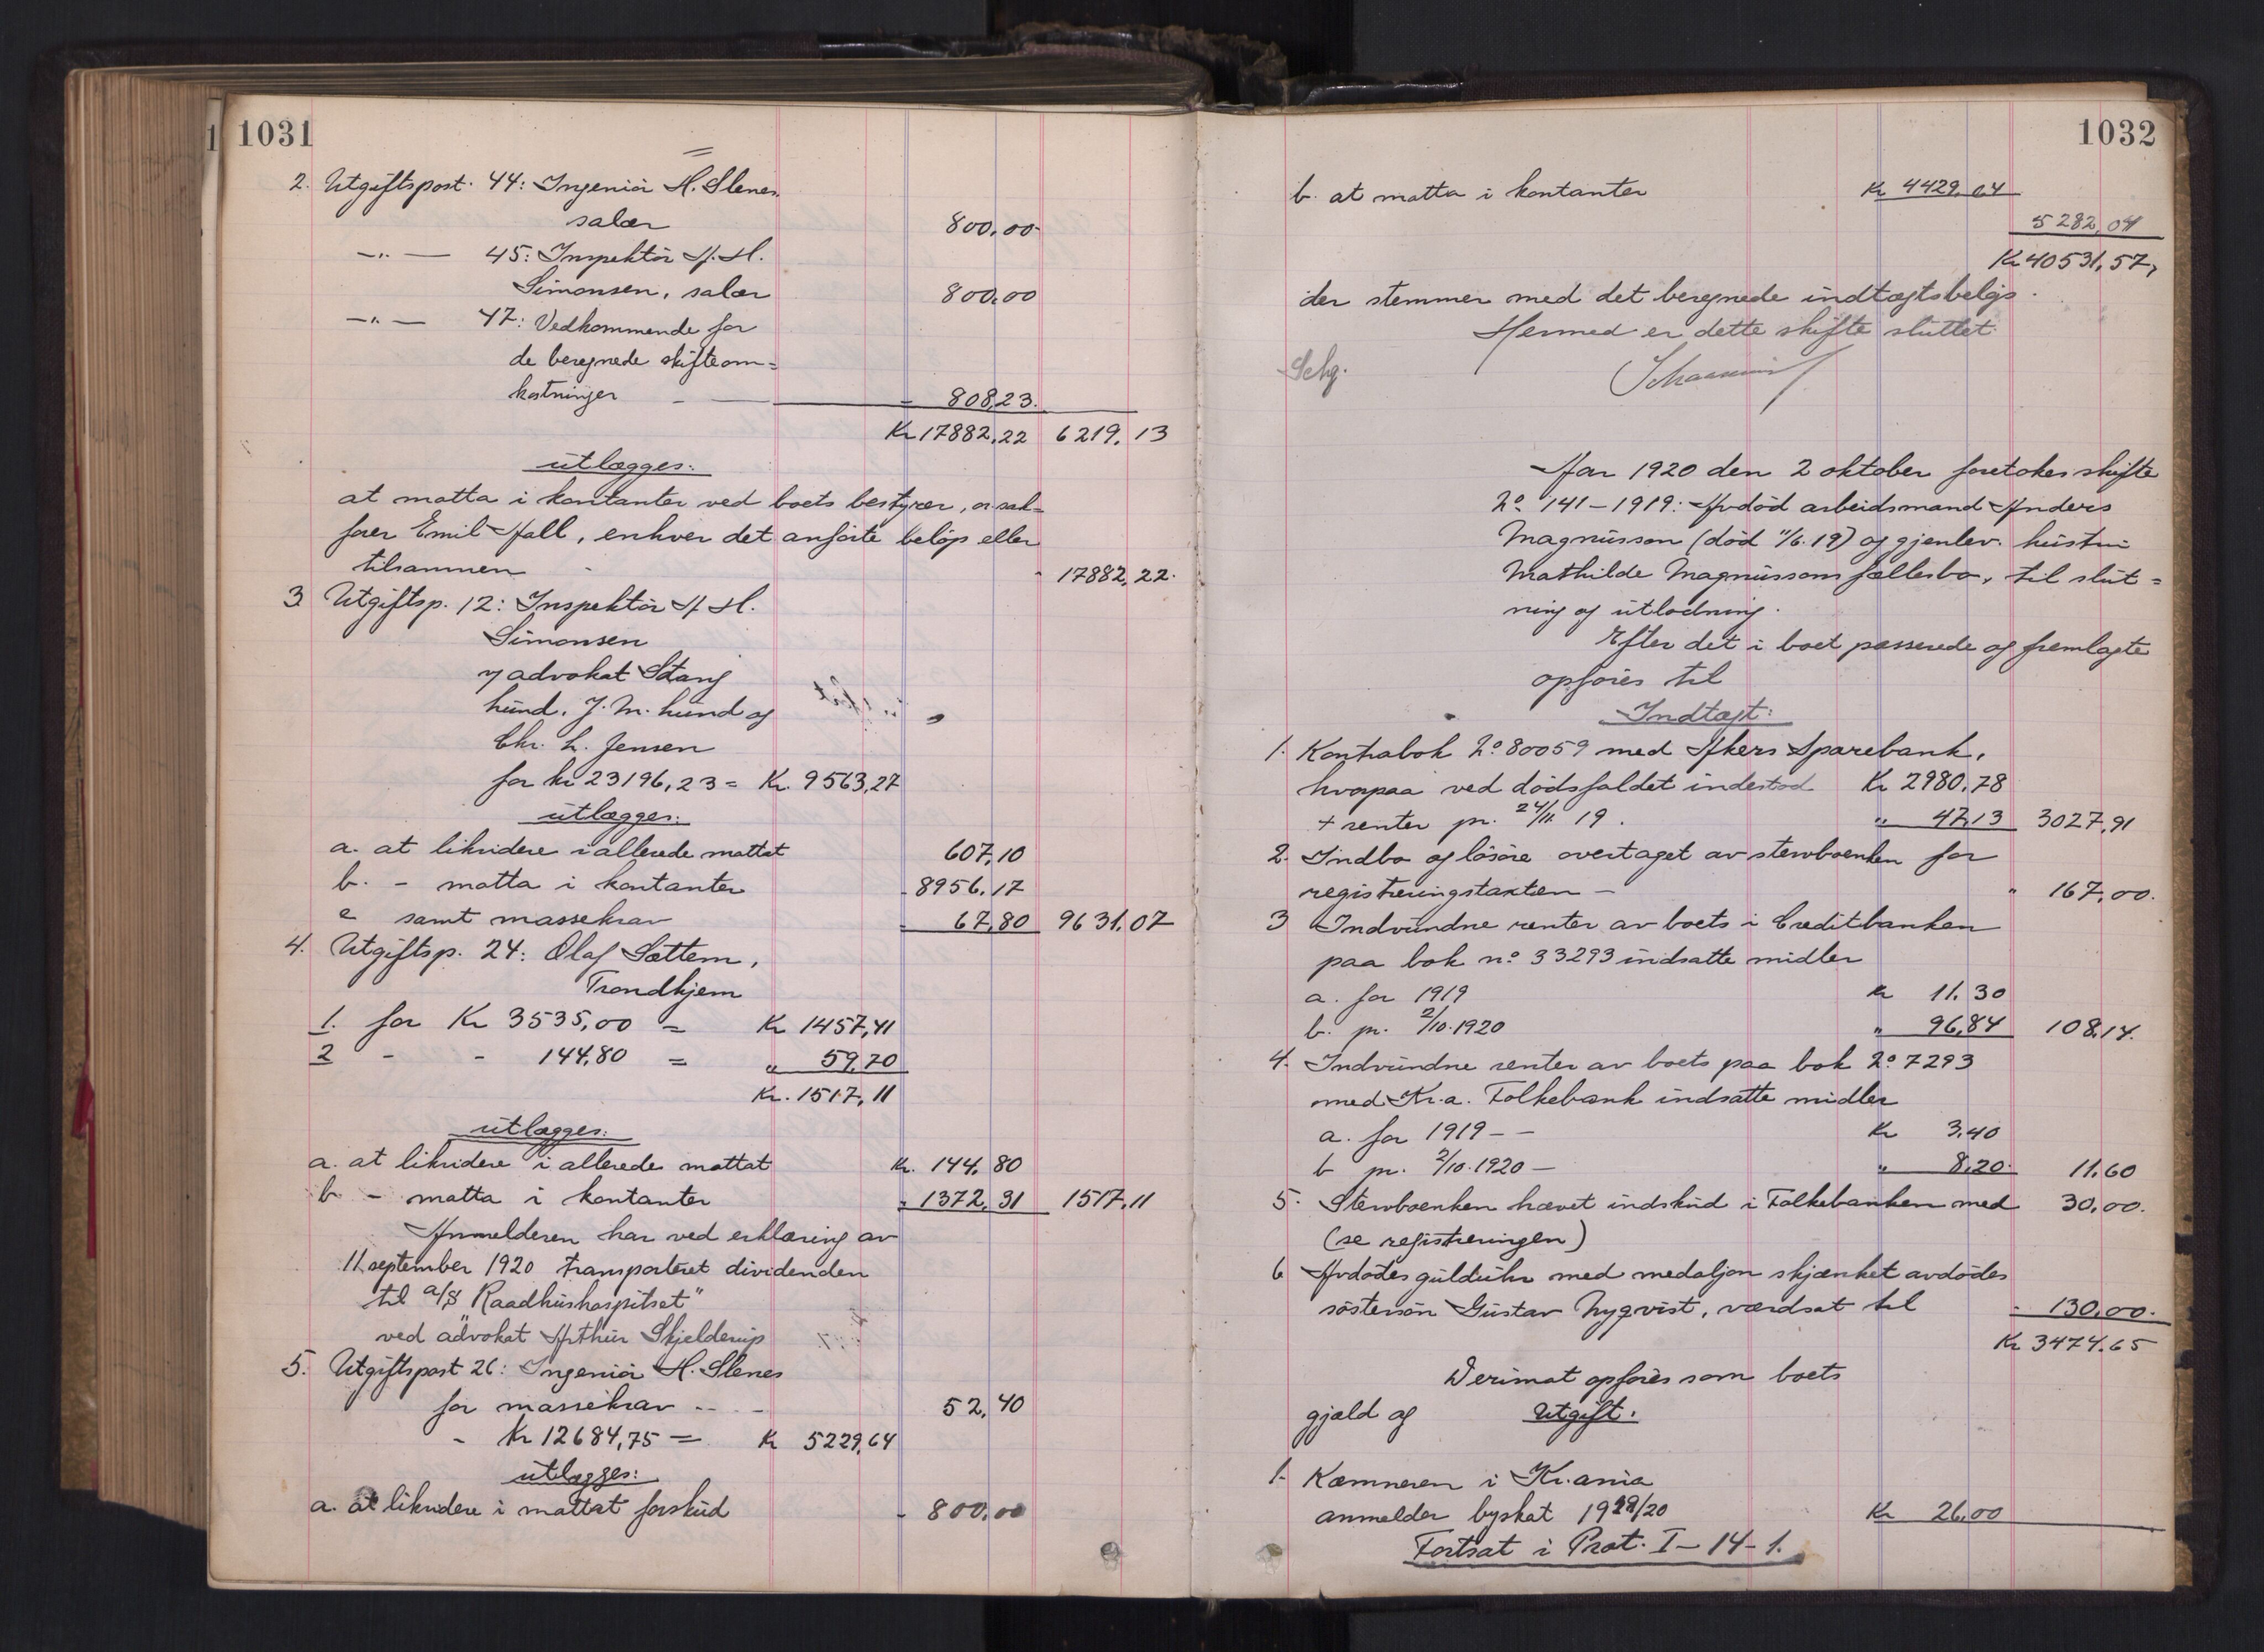 1031
2. Utgiftspost. 44: Ingeniör H. Slenes.
salær 800,00
—"— 45: Inspektör A. H.
Simonsen, salær 800,00
—"— 47: Vedkommende for
de beregnede skifteom=
kostninger - 808,23.
Kr 17882,22 6219,13
utlægges:
at motta i kontanter ved boets bestyrer, o. sak=
förer Emil Hall, enhver det anförte belöp eller
tilsammen - 17882,22.
3 Utgiftsp. 12: Inspektör A H.
Simonsen
v/ advokat Stang
Lund, J. M. Lund og
Chr. L. Jensen
for kr 23196,23 = Kr. 9563,27
utlægges:
a. at likvidere i allerede mottat 607,10
b. - motta i kontanter - 8956,17
c samt massekrav - 67,80 9631,07
4. Utgiftsp. 24: Olaf Sættem,
Trondhjem
1. for Kr 3535,00 = Kr 1457,41
2 - - 144,80 = " 59,70
Kr. 1517,11
utlægges:
a. at likvidere i allerede mottat Kr. 144,80
b - motta i kontanter - 1372,31 1517,11
Anmelderen har ved erklæring av
11 september 1920 transporteret dividenden
til a/s "Raadhushospitset"
ved advokat Arthur Skjelderup
5. Utgiftspost 26: Ingeniör H. Slenes
for massekrav - - - 52,40
- Kr 12684,75 = Kr 5229,64
utlægges:
a. at likvidere i mottat forskud - 800,00
1032
b. at motta i kontanter Kr 4429,04
5282,04
Kr 40531,57,
der stemmer med det beregnede indtægtsbelöp.
Hermed er dette skifte sluttet.
Schg.
Schaanning
Aar 1920 den 2 oktober foretokes skifte
No 141-1919: Avdöd arbeidsmand Anders
Magnusson (död 11/6.19) og gjenlev. hustru
Mathilde Magnussons fællesbo, til slut=
ning og utlodning.
Efter det i boet passerede og fremlagte
opföres til
Indtægt:
1. Kontrabok No 80059 med Akers Sparebank,
hvorpaa ved dödsfaldet indestod Kr 2980,78
+ renter pr. 24/11 19. " 47,13 3027,91
2. Indbo og lösöre overtaget av stervboenken for
registreringstaxten - " 167,00.
3 Indvundne renter av boets i Creditbanken
paa bok no 33293 indsatte midler
a. for 1919 Kr 11,30
b. pr. 2/10.1920 " 96,84 108,14.
4. Indvundne renter av boets paa bok No 7293
med Kr.a. Folkebank indsatte midler
a. for 1919 - - Kr 3,40
b pr. 2/10.1920 - " 8,20. 11,60
5. Stervboenken hævet indskud i Folkebanken med 30,00.
(se registreringen)
6 Avdödes gulduhr med medaljon skjænket avdödes
söstersön Gustav Nyqvist, værdsat til - 130,00.
Kr 3474,65
Derimot opföres som boets
gjæld og Utgift.
1. Kæmneren i Kr.ania
anmelder byskat 1919/20 Kr 26,00
Fortsat i Prot. I-14-1.